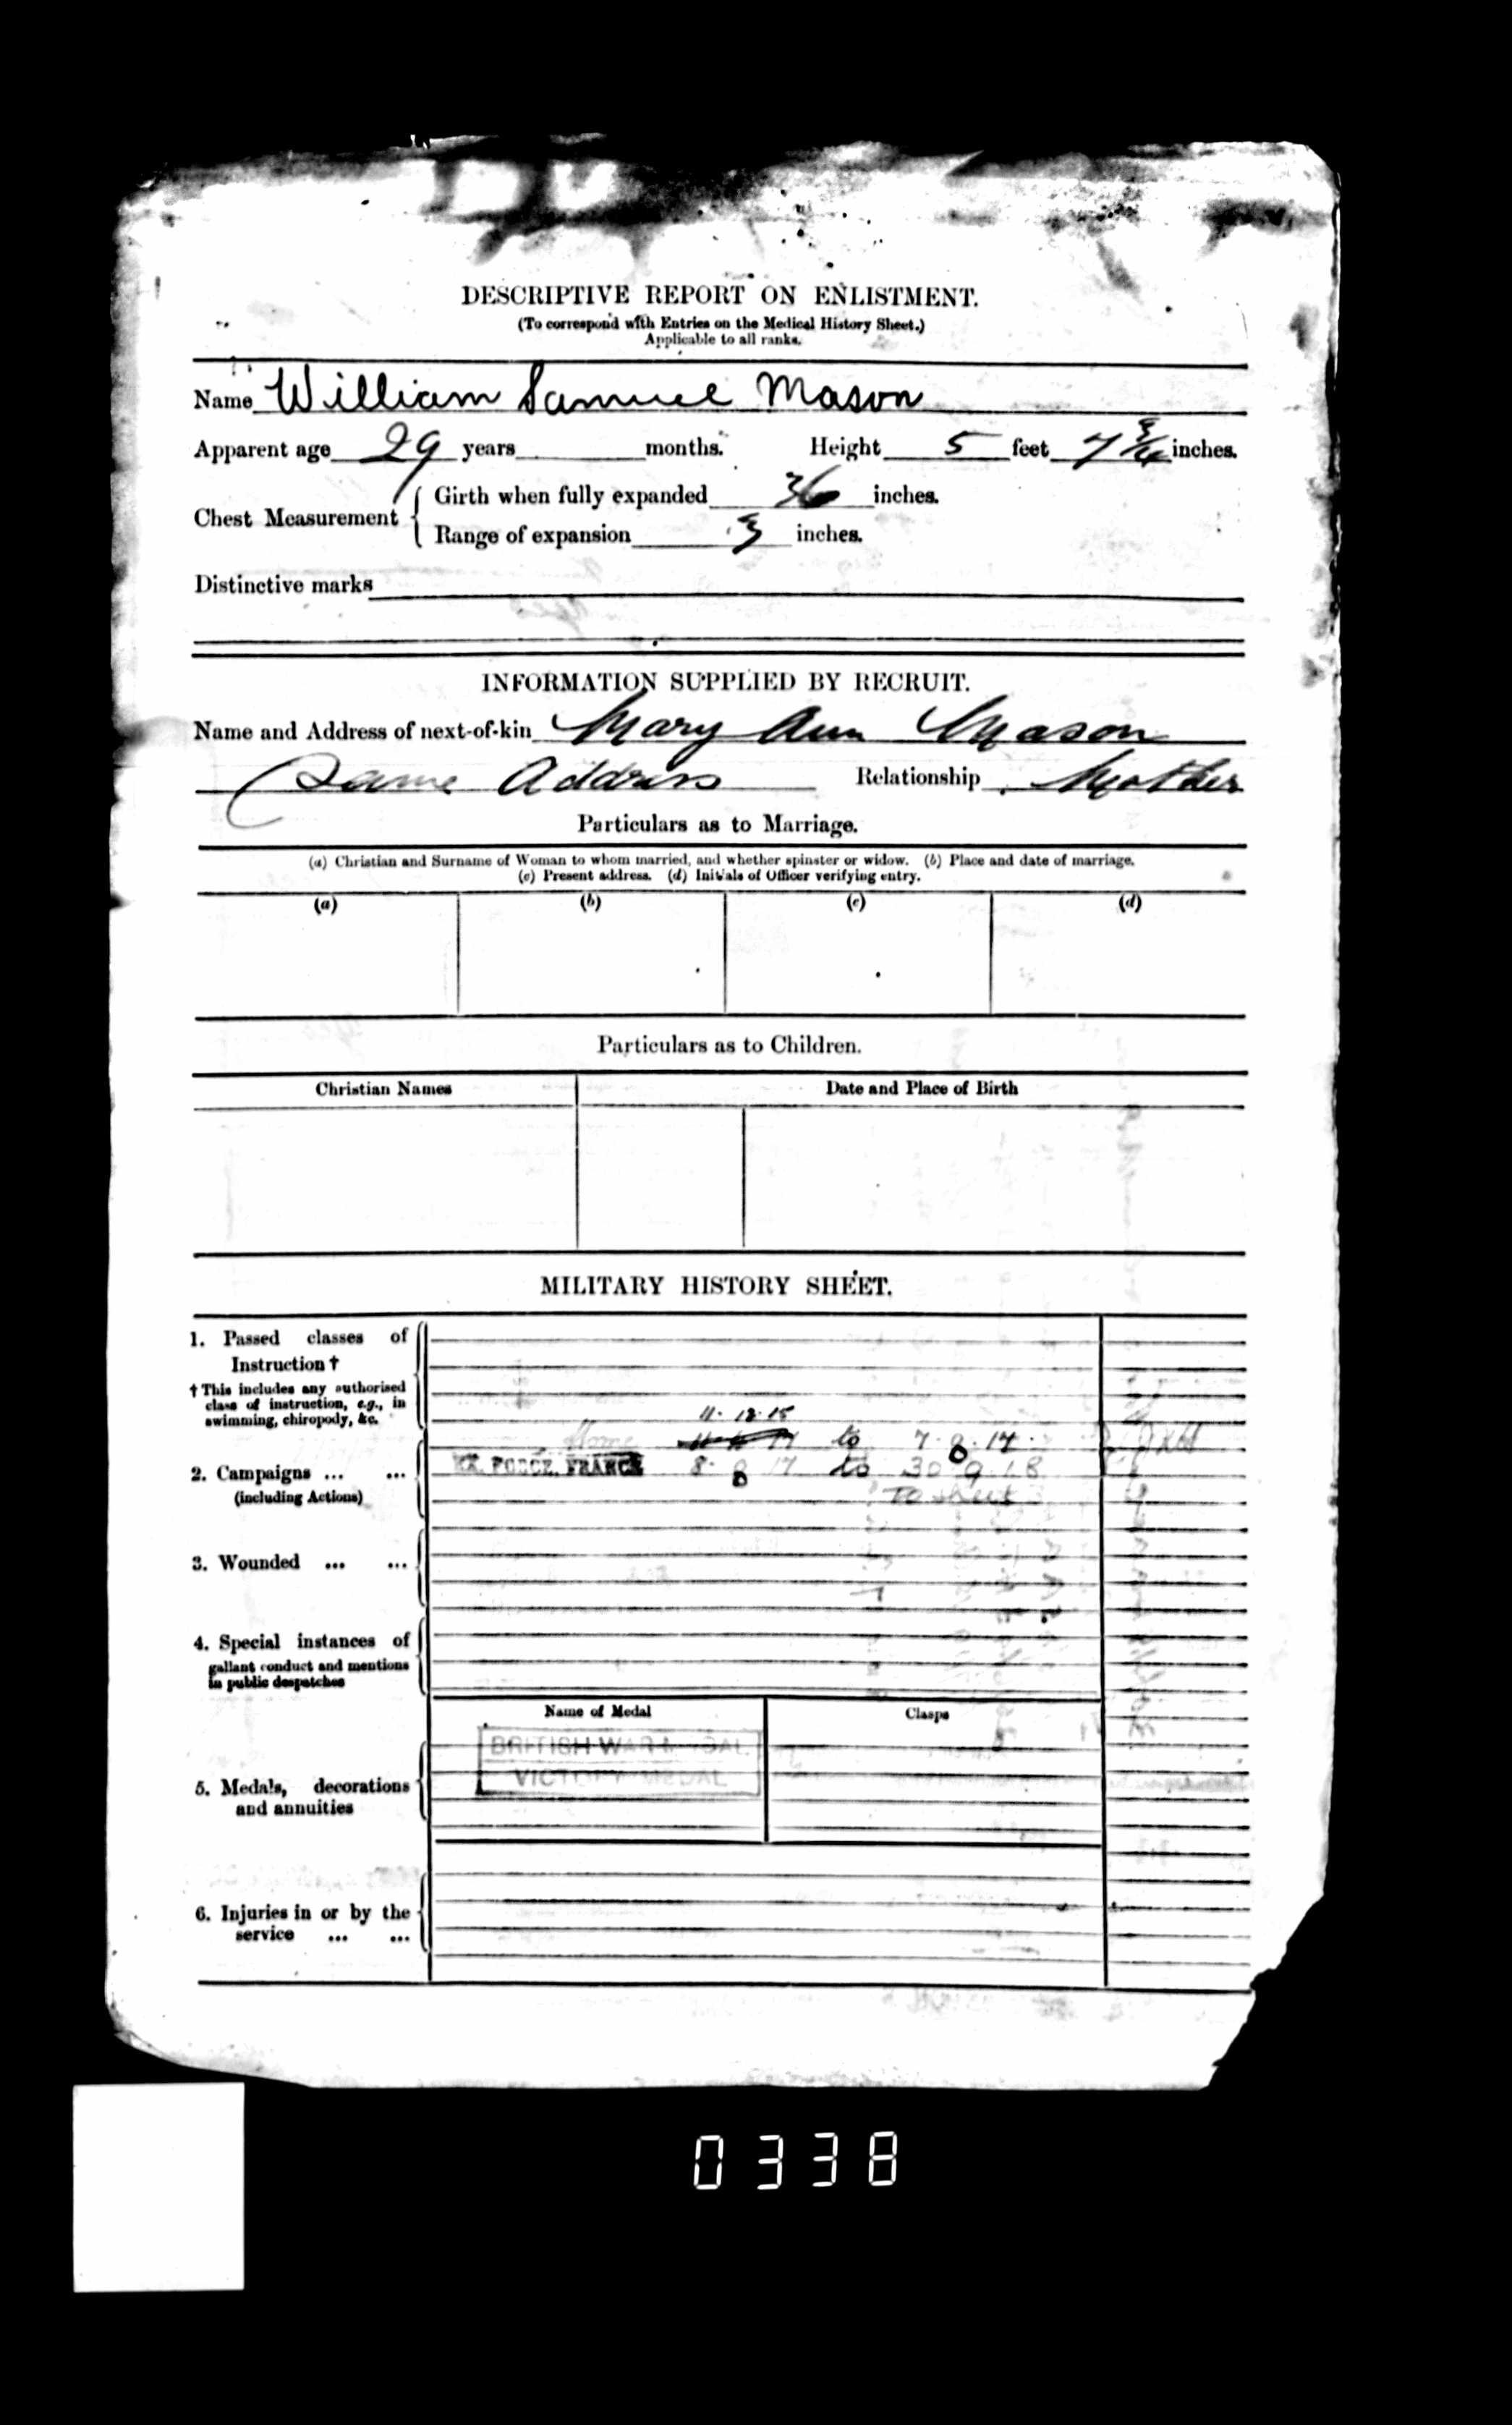 DESCRIPTIVE REPORT ON ENLISTMENT.
(To correspond with Entries on the Medical History Sheet.)
Applicable to all ranks.
Name William Samuel Mason
Apparent age 29 years months. Height 5 feet 7 3/4 inches.
Chest Measurement { Girth when fully expanded 36 inches.
Range of expansion 3 inches.
Distinctive marks
INFORMATION SUPPLIED BY RECRUIT.
Name and Address of next-of-kin Mary Ann Mason
Same Address Relationship Mother
Particulars as to Marriage.
(a) Christian and Surname of Woman to whom married, and whether spinster or widow. (b) Place and date of marriage.
(c) Present address. (d) Initials of Officer verifying entry.
(a) (b) (c) (d)
Particulars as to Children.
Christian Names Date and Place of Birth
MILITARY HISTORY SHEET.
1. Passed classes of
Instruction †
† This includes any authorised
class of instruction, e.g., in
swimming, chiropody, &c.
11. 12. 15
Home to 7. 8. 17.
2. Campaigns ... ...
(including Actions)
EX. FORCE. FRANCE 8. 8 17 to 30 9 18
To sheet
3. Wounded ... ...
4. Special instances of
gallant conduct and mentions
in public despatches
Name of Medal Clasps
BRITISH WAR MEDAL
VICTORY MEDAL
5. Medals, decorations
and annuities
6. Injuries in or by the
service ... ...
0338